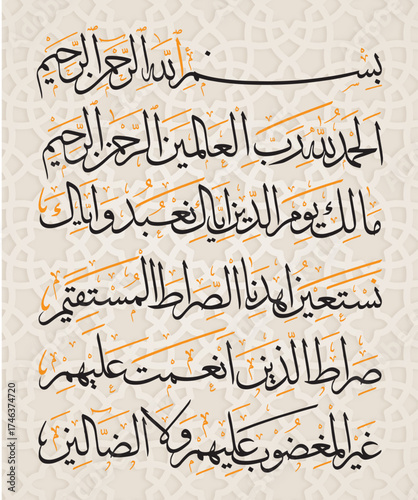 بسم الله الرحمن الرحيم
الحمد لله رب العالمين الرحمن الرحيم
مالك يوم الدين اياك نعبد واياك
نستعين اهدنا الصراط المستقيم
صراط الذين انعمت عليهم
غير المغضوب عليهم ولا الضالين
Adobe Stock | #1746374720